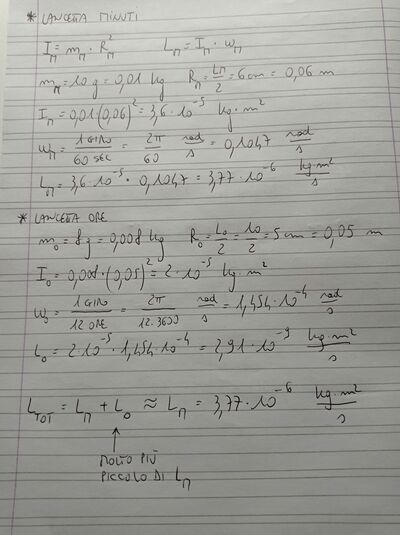 * LANCETTA MINUTI
I_M = m_M · R_M^2    L_M = I_M · ω_M
m_M = 10 g = 0,01 kg    R_M = L_M/2 = 6 cm = 0,06 m
I_M = 0,01 (0,06)^2 = 3,6 · 10^-5 kg · m^2
ω_M = 1 GIRO/60 SEC = 2π/60 rad/s = 0,1047 rad/s
L_M = 3,6 · 10^-5 · 0,1047 = 3,77 · 10^-6 kg·m^2/s
* LANCETTA ORE
m_o = 8 g = 0,008 kg    R_o = L_o/2 = 10/2 = 5 cm = 0,05 m
I_o = 0,008 (0,05)^2 = 2 · 10^-5 kg · m^2
ω_o = 1 GIRO/12 ORE = 2π/12·3600 rad/s = 1,454 · 10^-4 rad/s
L_o = 2 · 10^-5 · 1,454 · 10^-4 = 2,91 · 10^-9 kg·m^2/s
L_TOT = L_M + L_o ≈ L_M = 3,77 · 10^-6 kg·m^2/s
↑
MOLTO PIÙ
PICCOLO DI L_M